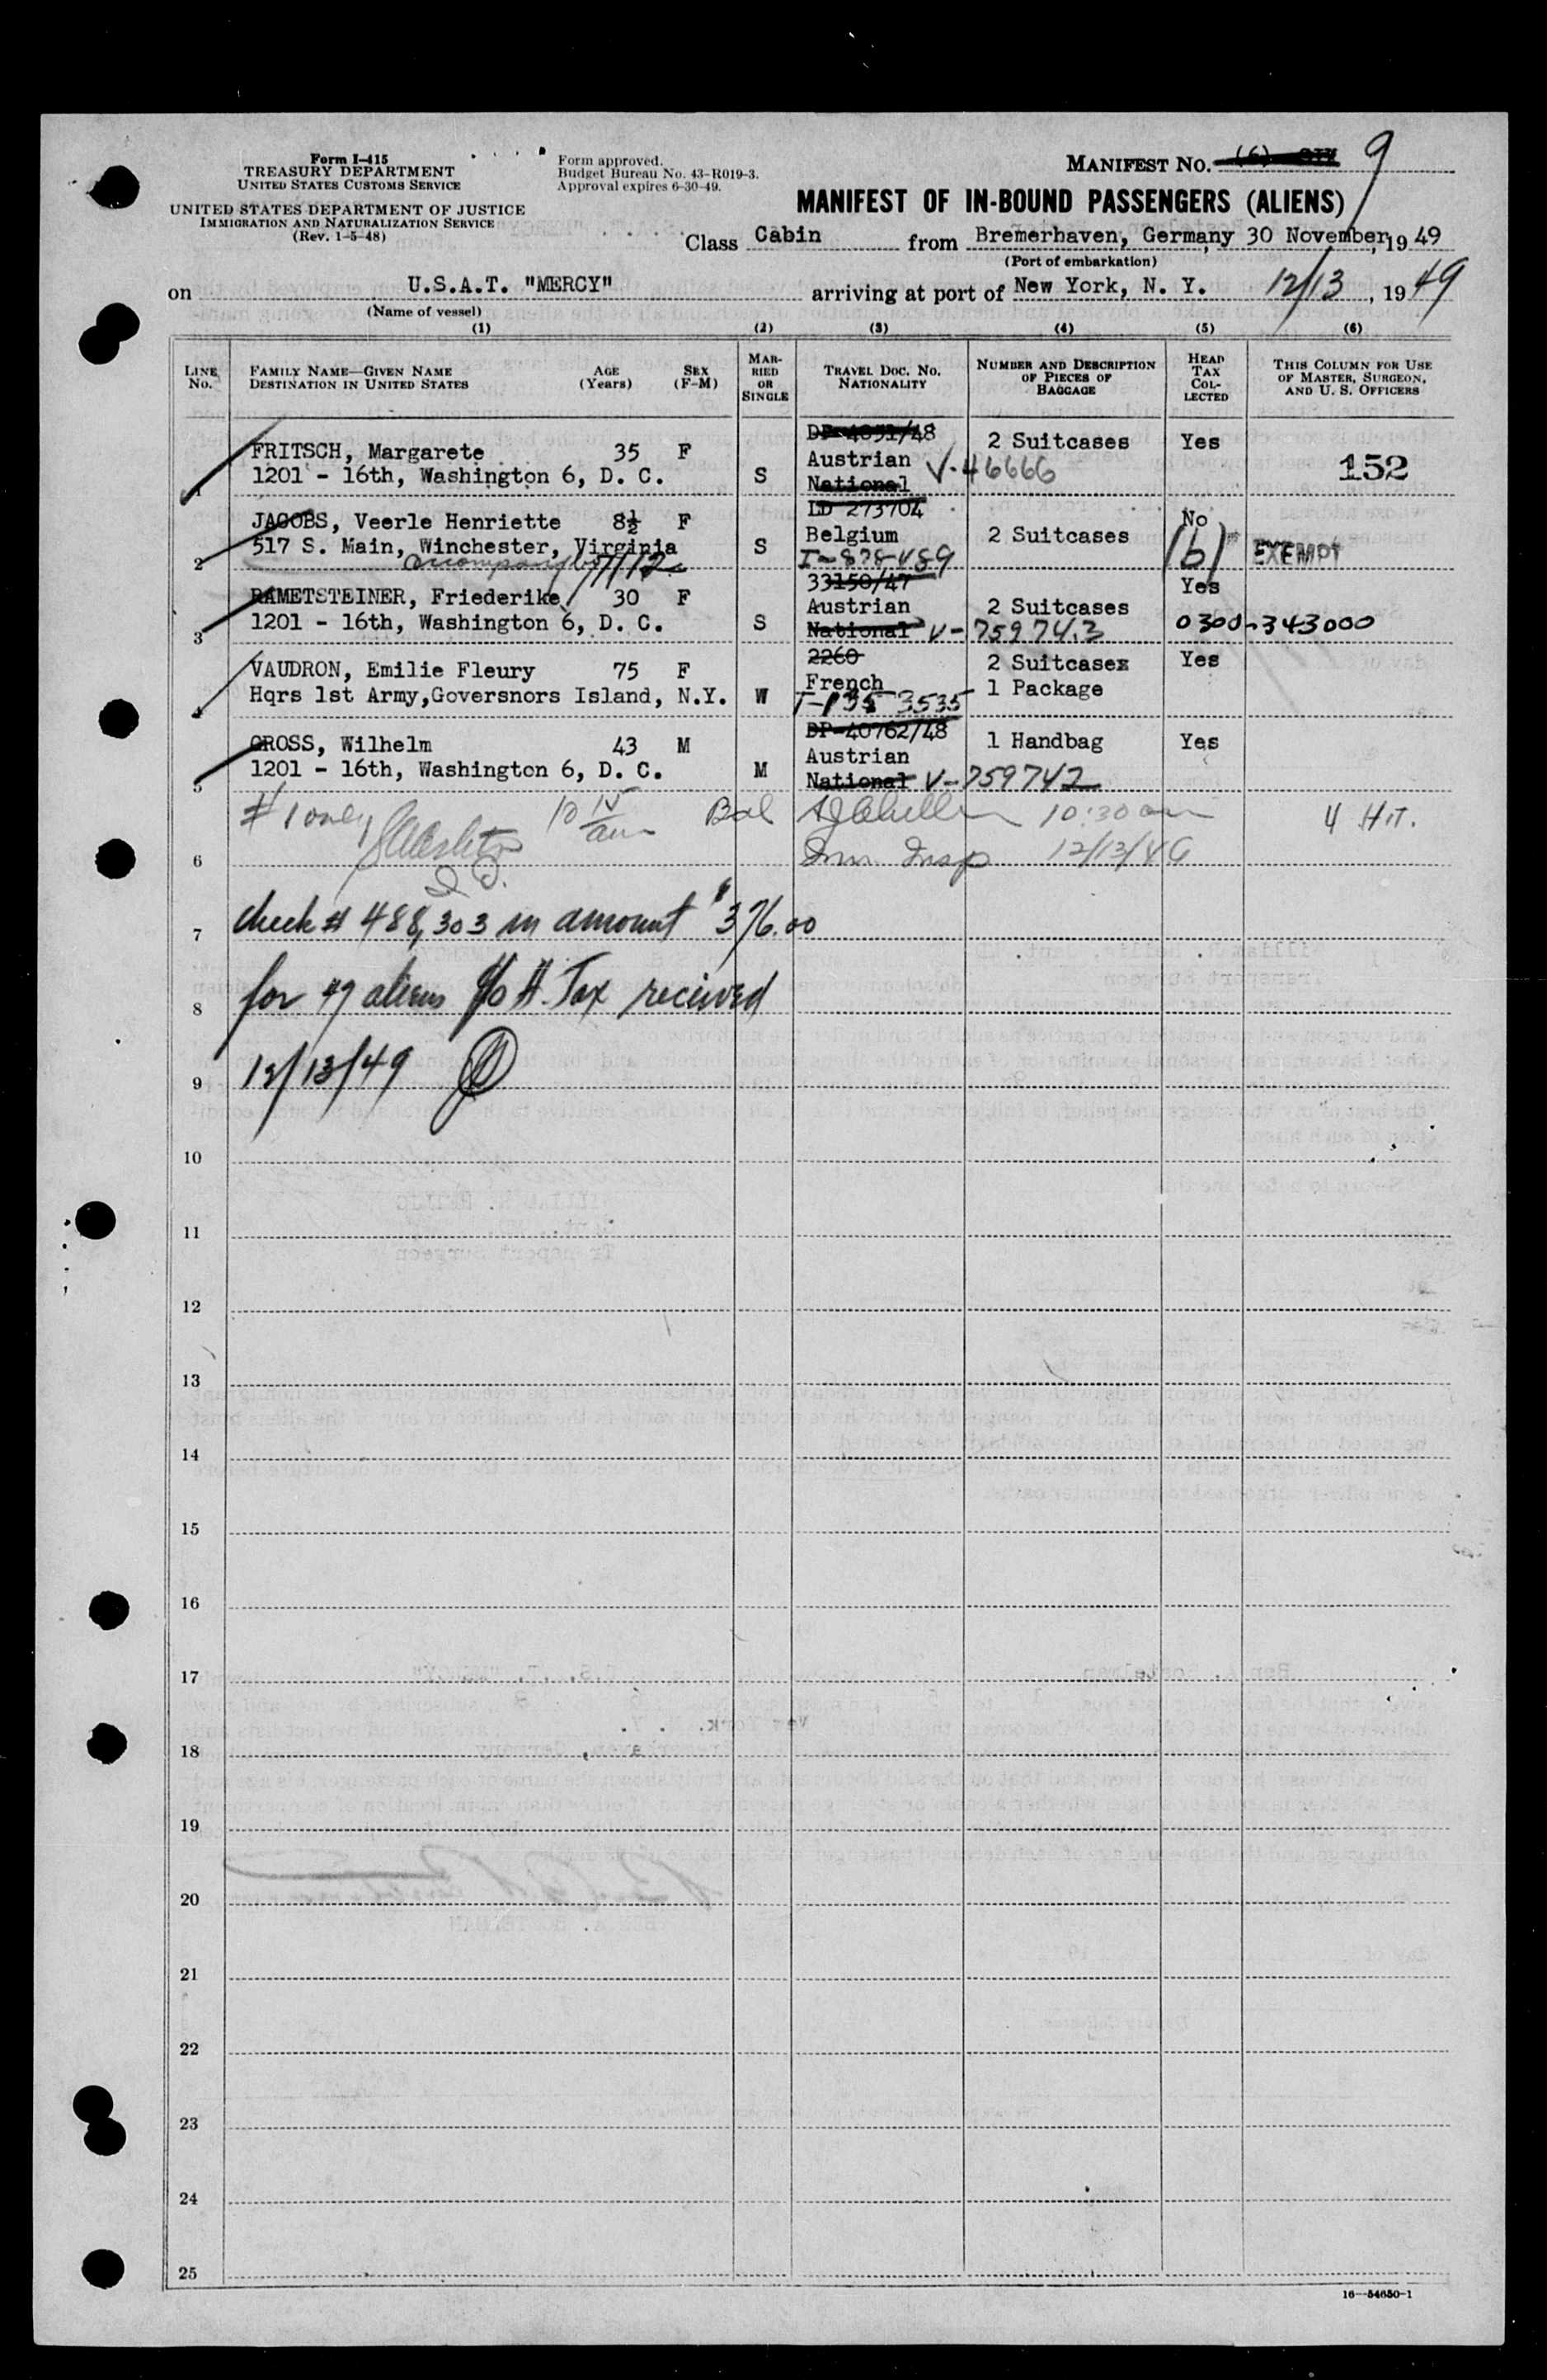 Form I-415
TREASURY DEPARTMENT
UNITED STATES CUSTOMS SERVICE
UNITED STATES DEPARTMENT OF JUSTICE
IMMIGRATION AND NATURALIZATION SERVICE
(Rev. 1-5-48)
Form approved.
Budget Bureau No. 43-R019-3.
Approval expires 6-30-49.
MANIFEST NO. (6) 9
MANIFEST OF IN-BOUND PASSENGERS (ALIENS)
Class Cabin from Bremerhaven, Germany 30 November, 19 49
(Port of embarkation)
on U.S.A.T. "MERCY" arriving at port of New York, N. Y. 12/13, 19 49
(Name of vessel)
(1) (2) (3) (4) (5) (6)
LINE No. FAMILY NAME—GIVEN NAME DESTINATION IN UNITED STATES AGE (Years) SEX (F-M) MARRIED OR SINGLE TRAVEL DOC. NO. NATIONALITY NUMBER AND DESCRIPTION OF PIECES OF BAGGAGE HEAD TAX COLLECTED THIS COLUMN FOR USE OF MASTER, SURGEON, AND U. S. OFFICERS
DP-4051/48
FRITSCH, Margarete 35 F 2 Suitcases Yes
1201 - 16th, Washington 6, D. C. S Austrian V-46666 152
1 National
LD 273704
JACOBS, Veerle Henriette 8½ F Belgium 2 Suitcases No
517 S. Main, Winchester, Virginia S (b) EXEMPT
2 accompany by 7/12 I-878489
33150/47
RAMETSTEINER, Friederike 30 F Austrian 2 Suitcases Yes
1201 - 16th, Washington 6, D. C. S National V-759743 0300-343000
3
2260
VAUDRON, Emilie Fleury 75 F French 2 Suitcases Yes
Hqrs 1st Army,Goversnors Island, N.Y. W 1 Package
4 T-135 3535
DP-40762/48
GROSS, Wilhelm 43 M Austrian 1 Handbag Yes
1201 - 16th, Washington 6, D. C. M National V-759742
5
# 1 only 10 15 am Bal 10:30 am 4 H.T.
6 Imm Insp 12/13/49
7 check # 488,303 in amount $376.00
8 for 47 aliens H. Tax received
9 12/13/49
10
11
12
13
14
15
16
17
18
19
20
21
22
23
24
25
16—54650-1